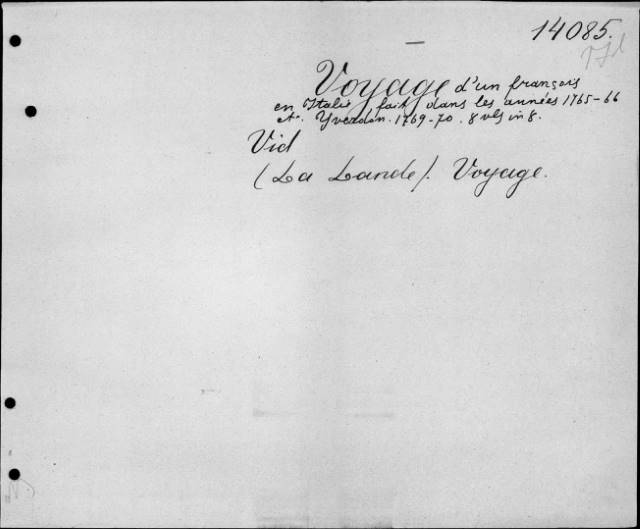 14085.
Voyage d'un françois
en Italie, fait dans les années 1765-66
etc. Yverdon. 1769-70. 8 vls in 8.
Vid
(La Lande). Voyage.